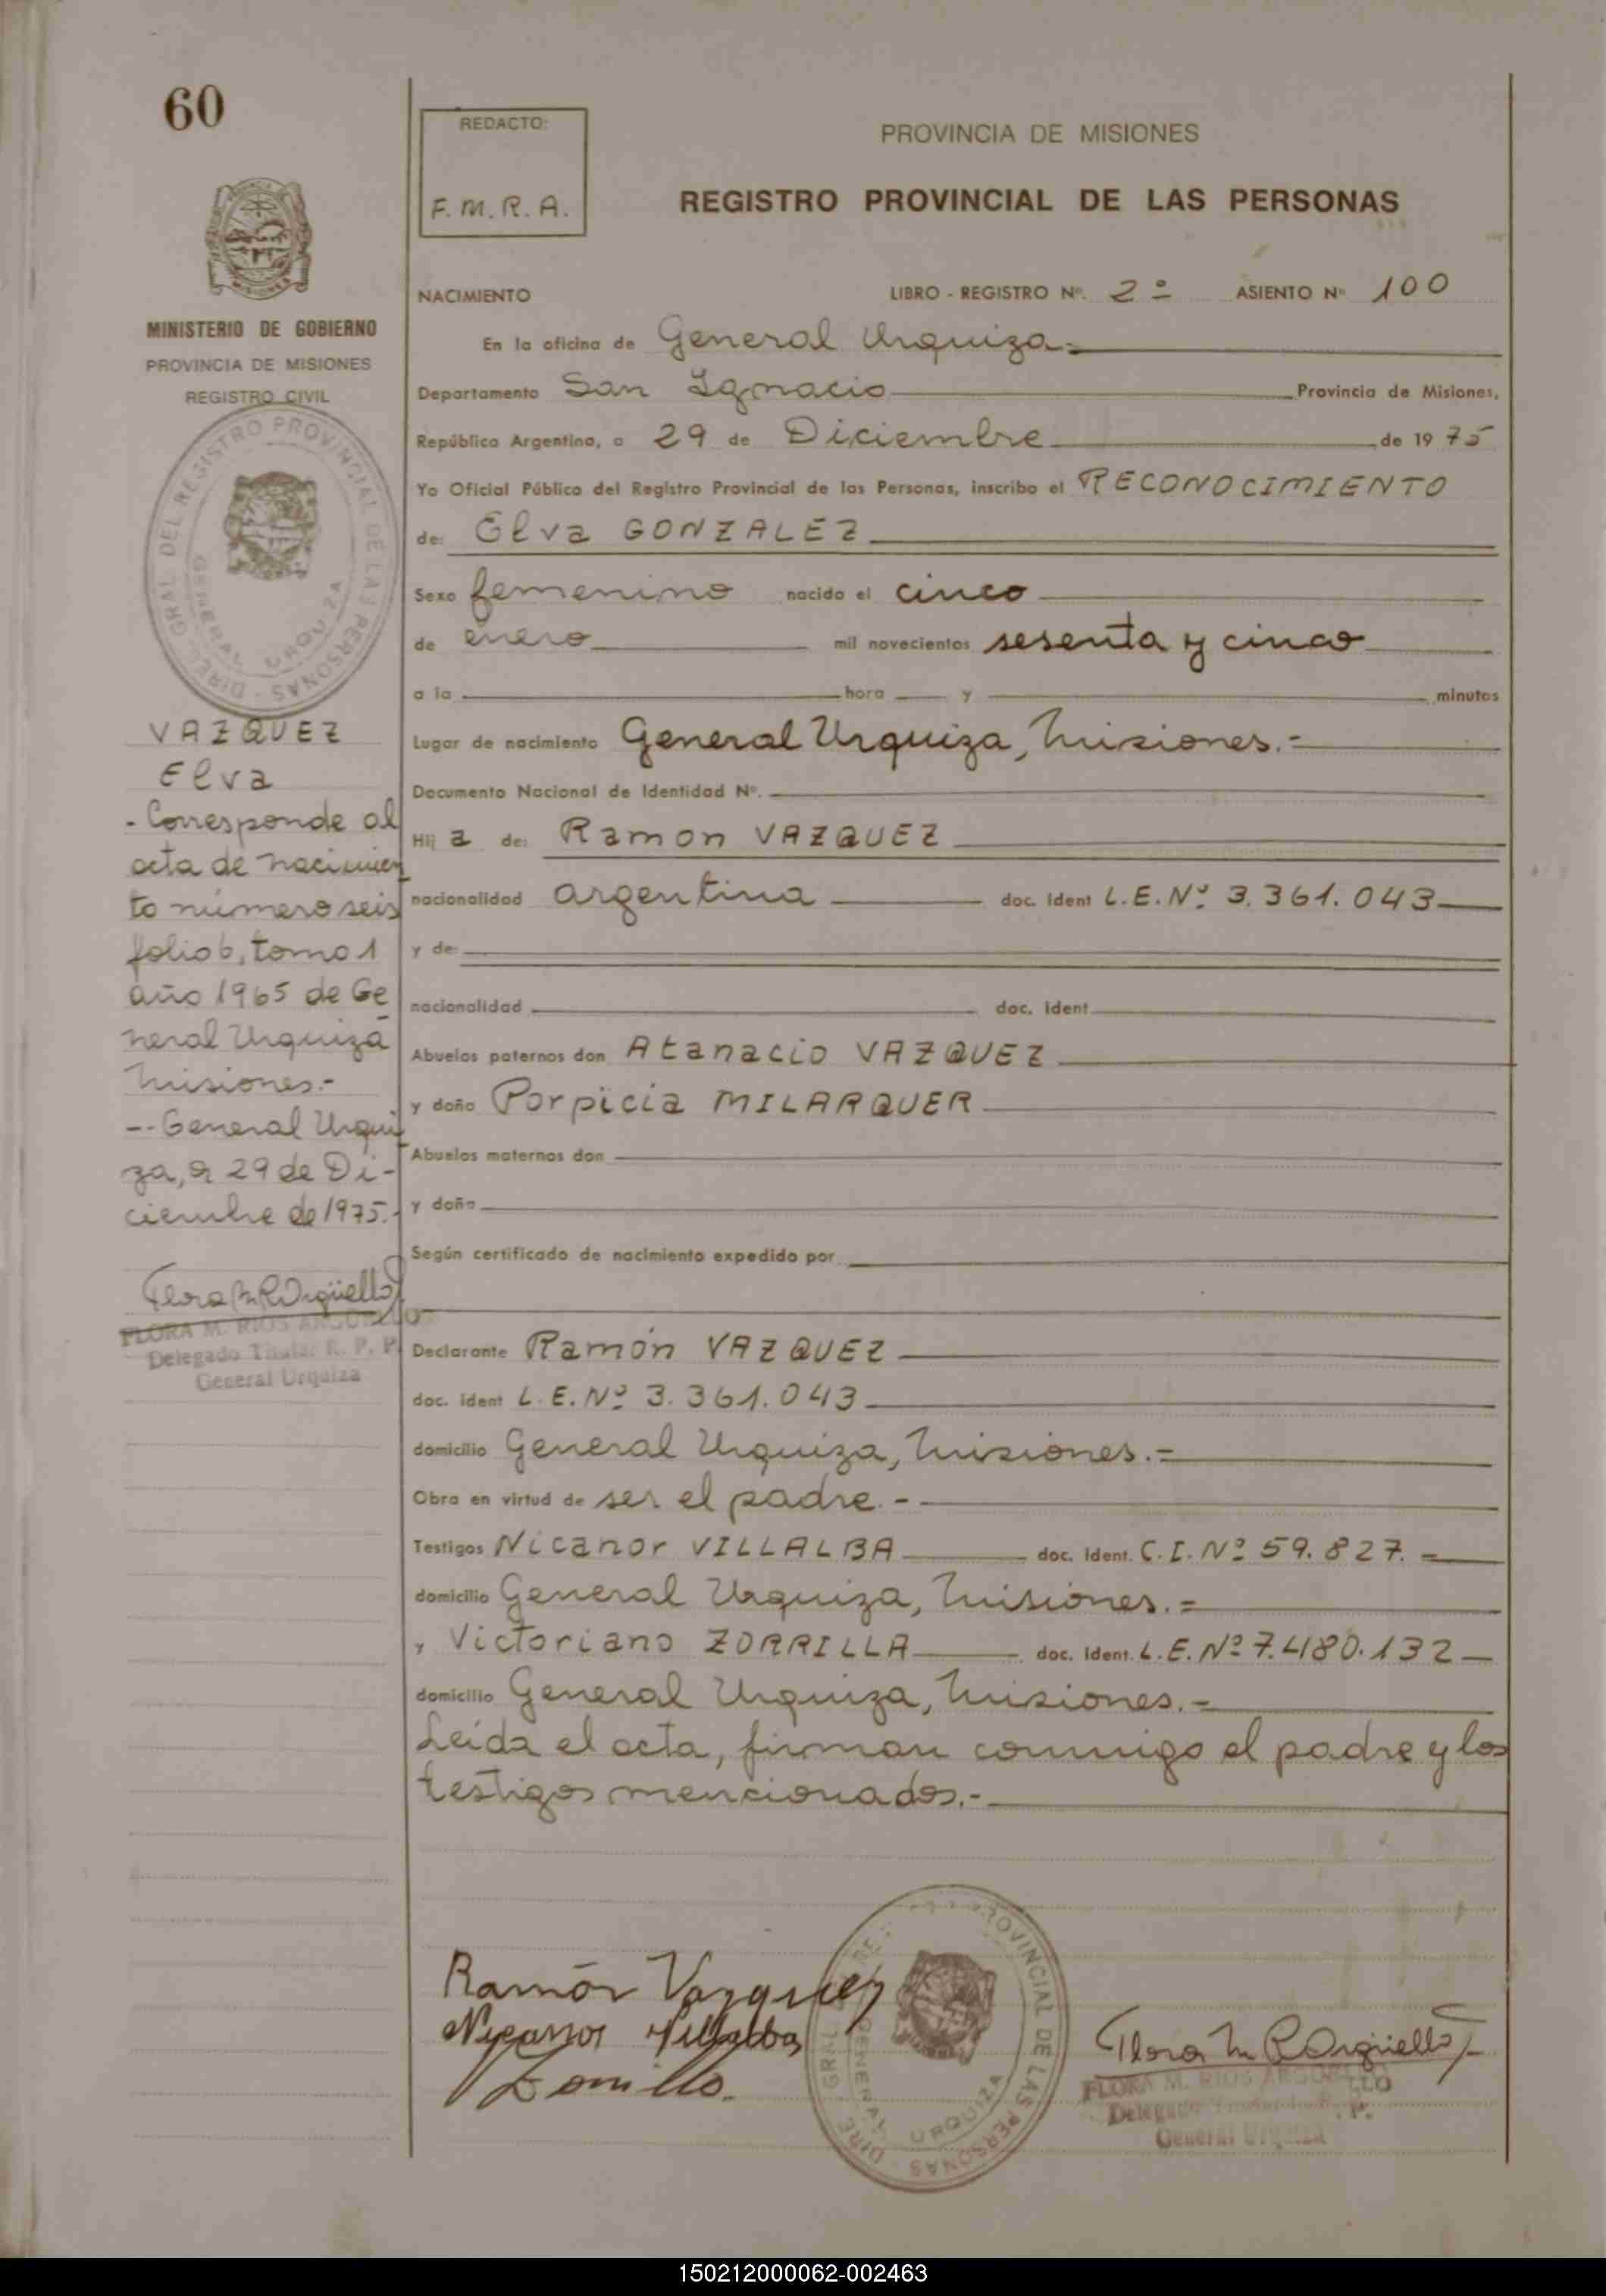 60
REDACTO:
F. M. R. A.
PROVINCIA DE MISIONES
REGISTRO PROVINCIAL DE LAS PERSONAS
MINISTERIO DE GOBIERNO
PROVINCIA DE MISIONES
REGISTRO CIVIL
DIRE. GRAL. DEL REGISTRO PROVINCIAL DE LAS PERSONAS
GENERAL URQUIZA
VAZQUEZ
Elva
- Corresponde al
acta de nacimien
to número seis
folio 6, tomo 1
año 1965 de Ge
neral Urquiza
Misiones.-
-- General Urqui
za, a 29 de Di-
ciembre de 1975.-
Flora M R Argüello
FLORA M. RIOS ARGUELLO
Delegado Titular R. P. P.
General Urquiza
NACIMIENTO LIBRO - REGISTRO Nº. 2º ASIENTO Nº 100
En la oficina de General Urquiza.-
Departamento San Ignacio Provincia de Misiones,
República Argentina, a 29 de Diciembre de 1975
Yo Oficial Público del Registro Provincial de las Personas, inscribo el RECONOCIMIENTO
de: Elva GONZALEZ
Sexo femenino nacido el cinco
de enero mil novecientos sesenta y cinco
a la hora y minutos
Lugar de nacimiento General Urquiza, Misiones.-
Documento Nacional de Identidad Nº.
Hij a de: Ramon VAZQUEZ
nacionalidad argentina doc. Ident L.E. Nº 3.361.043
y de:
nacionalidad doc. Ident
Abuelos paternos don Atanacio VAZQUEZ
y doña Porpicia MILARQUER
Abuelos maternos don
y doña
Según certificado de nacimiento expedido por
Declarante Ramón VAZQUEZ
doc. Ident L.E. Nº 3.361.043
domicilio General Urquiza, Misiones.=
Obra en virtud de ser el padre.-
Testigos Nicanor VILLALBA doc. Ident. C.I. Nº 59.827.=
domicilio General Urquiza, Misiones.=
y Victoriano ZORRILLA doc. Ident. L.E. Nº 7.480.132
domicilio General Urquiza, Misiones.=
Leida el acta, firman conmigo el padre y los
testigos mencionados.-
Ramón Vazquez
Nicanor Villalba
Zorrilla.
DIRE. GRAL. PROVINCIAL DE LAS PERSONAS
GENERAL URQUIZA
Flora M R Argüello
FLORA M. RIOS ARGUELLO
Delegado P.
General Urquiza
150212000062-002463